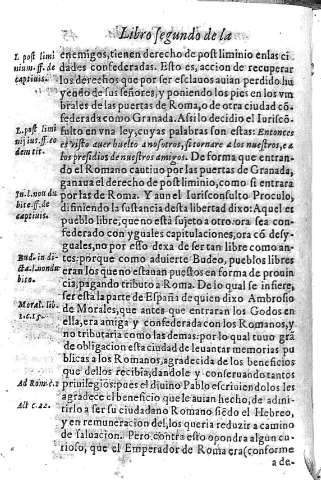 Libro segundo de la
enemigos, tienen derecho de postliminio en las ci
dades confederadas. Esto es, accion de recuperar
los derechos que por ser esclauos auian perdido hu
yendo de sus señores, y poniendo los pies en los vm
brales de las puertas de Roma, o de otra ciudad cõ
federada como Granada. Assi lo decidio el Iurisc
fulto en vna ley, cuyas palabras son estas: Entonces
es visto auer buelto a nosotros, si tornare a los nuestros, o a
los presidios de nuestros amigos. De forma que entran
do el Romano cautiuo por las puertas de Granada,
ganaua el derecho de postliminio, como si entrara
por las de Roma. Y aun el Iurisconsulto Proculo,
difiniendo la sustancia desta libertad dixo: Aquel es
pueblo libre, que no està sujeto a otro: ora sea con
federado con yguales capitulaciones, ora cõ desy-
guales, no por esso dexa de ser tan libre como an-
tes: porque como aduierte Budeo, pueblos libres
eran los que no estauan puestos en forma de prouin
cia, pagando tributo a Roma. De lo qual se infiere,
ser esta la parte de España de quien dixo Ambrosio
de Morales, que antes que entraran los Godos en
ella, era amiga y confederada con los Romanos, y
no tributaria como las demas: por lo qual tuuo grã
de obligacion esta ciudad de leuantar memorias pu
blicas a los Romanos, agradecida de los beneficios
que dellos recibia, dandole y conseruando tantos
priuilegios: pues el diuino Pablo escriuiendolos les
agradece el beneficio que le auian hecho, de admi-
tirlo a ser su ciudadano Romano siẽdo el Hebreo,
y en remuneracion del, los queria reduzir a camino
de saluacion. Pero contra esto opondra algun cu-
rioso, que el Emperador de Roma era (conforme
a de-
L. post limi
nium. ff. de
captiuis.
L. post limi
nij ius. ff. eo
dem tit.
In. l. non du
bito. ff. de
captiuis.
Bud. in di-
cta. l. non du
bito.
Moral. lib.
Ad Rom. c. 1
Act c. 22.